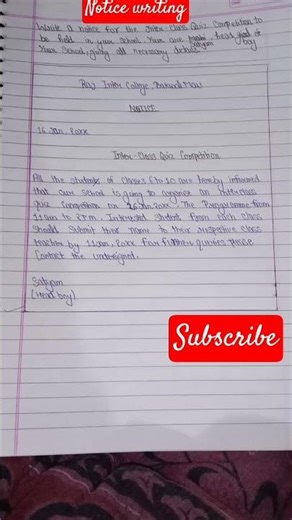 Notice writing
Write a notice for the Inter-class Quiz Competition to
be held in your school. You are head boy of
your School, giving all necessary details
Satyam
Raj Inter College
NOTICE
16 Jan, 20xx
Inter-Class Quiz Competition
All the students of classes 6 to 10 are hereby informed
that our school is going to organize an Inter-class
quiz competition on 26 Jan 20xx. The Programme from
11am to 2 P.M. Interested student from each class
should submit their name to their respective class
teacher by 11 Jan, 20xx For further queries please
Contact the undersigned.
Satyam
(Head boy)
Subscribe